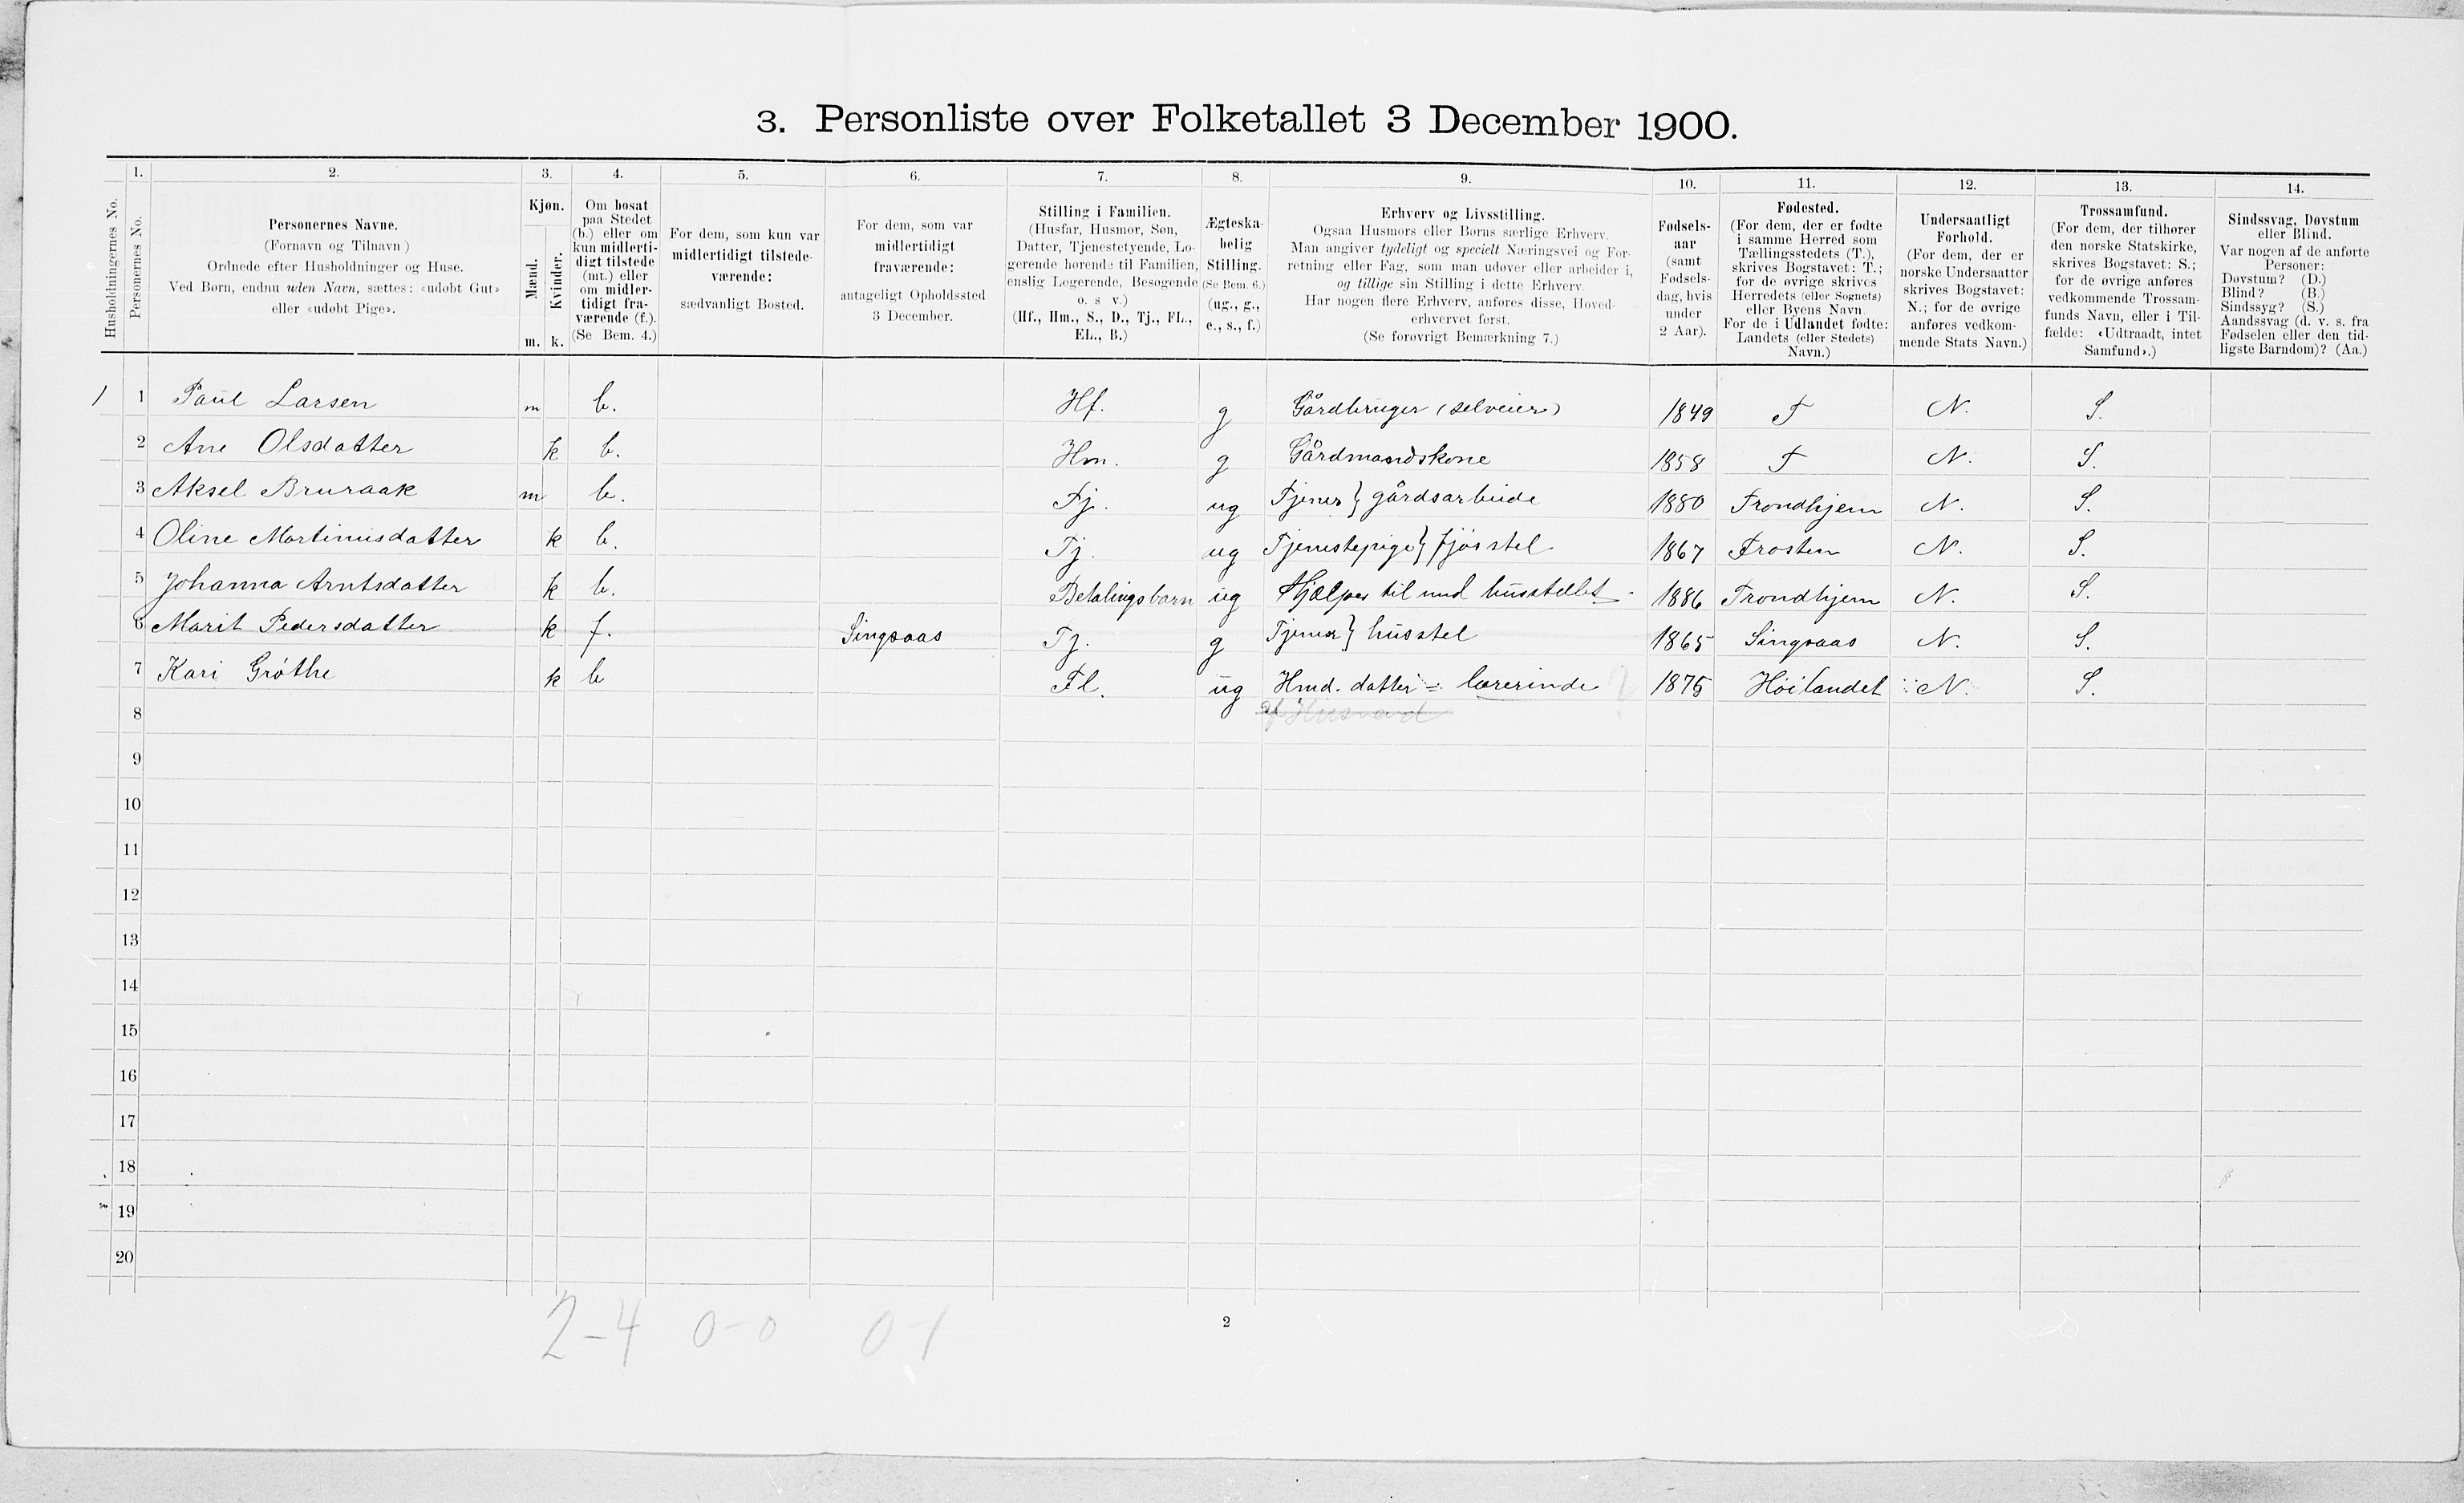 3. Personliste over Folketallet 3 December 1900.
Husholdningernes No.
1. Personernes No.
2. Personernes Navne.
(Fornavn og Tilnavn)
Ordnede efter Husholdninger og Huse.
Ved Børn, endnu uden Navn, sættes: «udøbt Gut»
eller «udøbt Pige».
3. Kjøn.
Mænd. Kvinder.
m. k.
4. Om bosat
paa Stedet
(b.) eller om
kun midlerti-
digt tilstede
(mt.) eller
om midler-
tidigt fra-
værende (f.).
(Se Bem. 4.)
5. For dem, som kun var
midlertidigt tilstede-
værende:
sædvanligt Bosted.
6. For dem, som var
midlertidigt
fraværende:
antageligt Opholdssted
3 December.
7. Stilling i Familien.
(Husfar, Husmor, Søn,
Datter, Tjenestetyende, Lo-
gerende hørende til Familien,
enslig Logerende, Besøgende
o. s v.)
(Hf., Hm., S., D., Tj., FL.,
EL., B.)
8. Ægteska-
belig
Stilling.
(Se Bem. 6.)
(ug., g.,
e., s., f.)
9. Erhverv og Livsstilling.
Ogsaa Husmors eller Børns særlige Erhverv.
Man angiver tydeligt og specielt Næringsvei og For-
retning eller Fag, som man udøver eller arbeider i,
og tillige sin Stilling i dette Erhverv.
Har nogen flere Erhverv, anføres disse, Hoved-
erhvervet først.
(Se forøvrigt Bemærkning 7.)
10. Fødsels-
aar
(samt
Fødsels-
dag, hvis
under
2 Aar).
11. Fødested.
(For dem, der er fødte
i samme Herred som
Tællingsstedets (T.),
skrives Bogstavet: T.;
for de øvrige skrives
Herredets (eller Sognets)
eller Byens Navn.
For de i Udlandet fødte:
Landets (eller Stedets)
Navn.)
12. Undersaatligt
Forhold.
(For dem, der er
norske Undersaatter
skrives Bogstavet:
N.; for de øvrige
anføres vedkom-
mende Stats Navn.)
13. Trossamfund.
(For dem, der tilhører
den norske Statskirke,
skrives Bogstavet: S.;
for de øvrige anføres
vedkommende Trossam-
funds Navn, eller i Til-
fælde: «Udtraadt, intet
Samfund».)
14. Sindssvag, Døvstum
eller Blind.
Var nogen af de anførte
Personer:
Døvstum? (D.)
Blind? (B.)
Sindssyg? (S.)
Aandssvag (d. v. s. fra
Fødselen eller den tid-
ligste Barndom)? (Aa.)
1 1 Paul Larsen m b. Hf. g Gårdbruger (selveier) 1849 T N. S.
2 Ane Olsdatter k b. Hm. g Gårdmandskone 1858 T N. S.
3 Aksel Bruraak m b. Tj. ug Tjener} gårdsarbeide 1880 Trondhjem N. S.
4 Oline Martinusdatter k b. Tj. ug Tjenestepige} fjösstel 1867 Frosten N. S.
5 Johanna Arntsdatter k b. Betalingsbarn ug Hjælper til med husstellet. 1886 Trondhjem N. S.
6 Marit Pedersdatter k f. Singsaas Tj. g Tjener} husstel 1865 Singsaas N. S.
7 Kari Gröthe k b Fl. ug Hmd. datter = lærerinde ? 1875 Höilandet N. S.
8
9
10
11
12
13
14
15
16
17
18
19
20
2-4 0-0 0-1
2